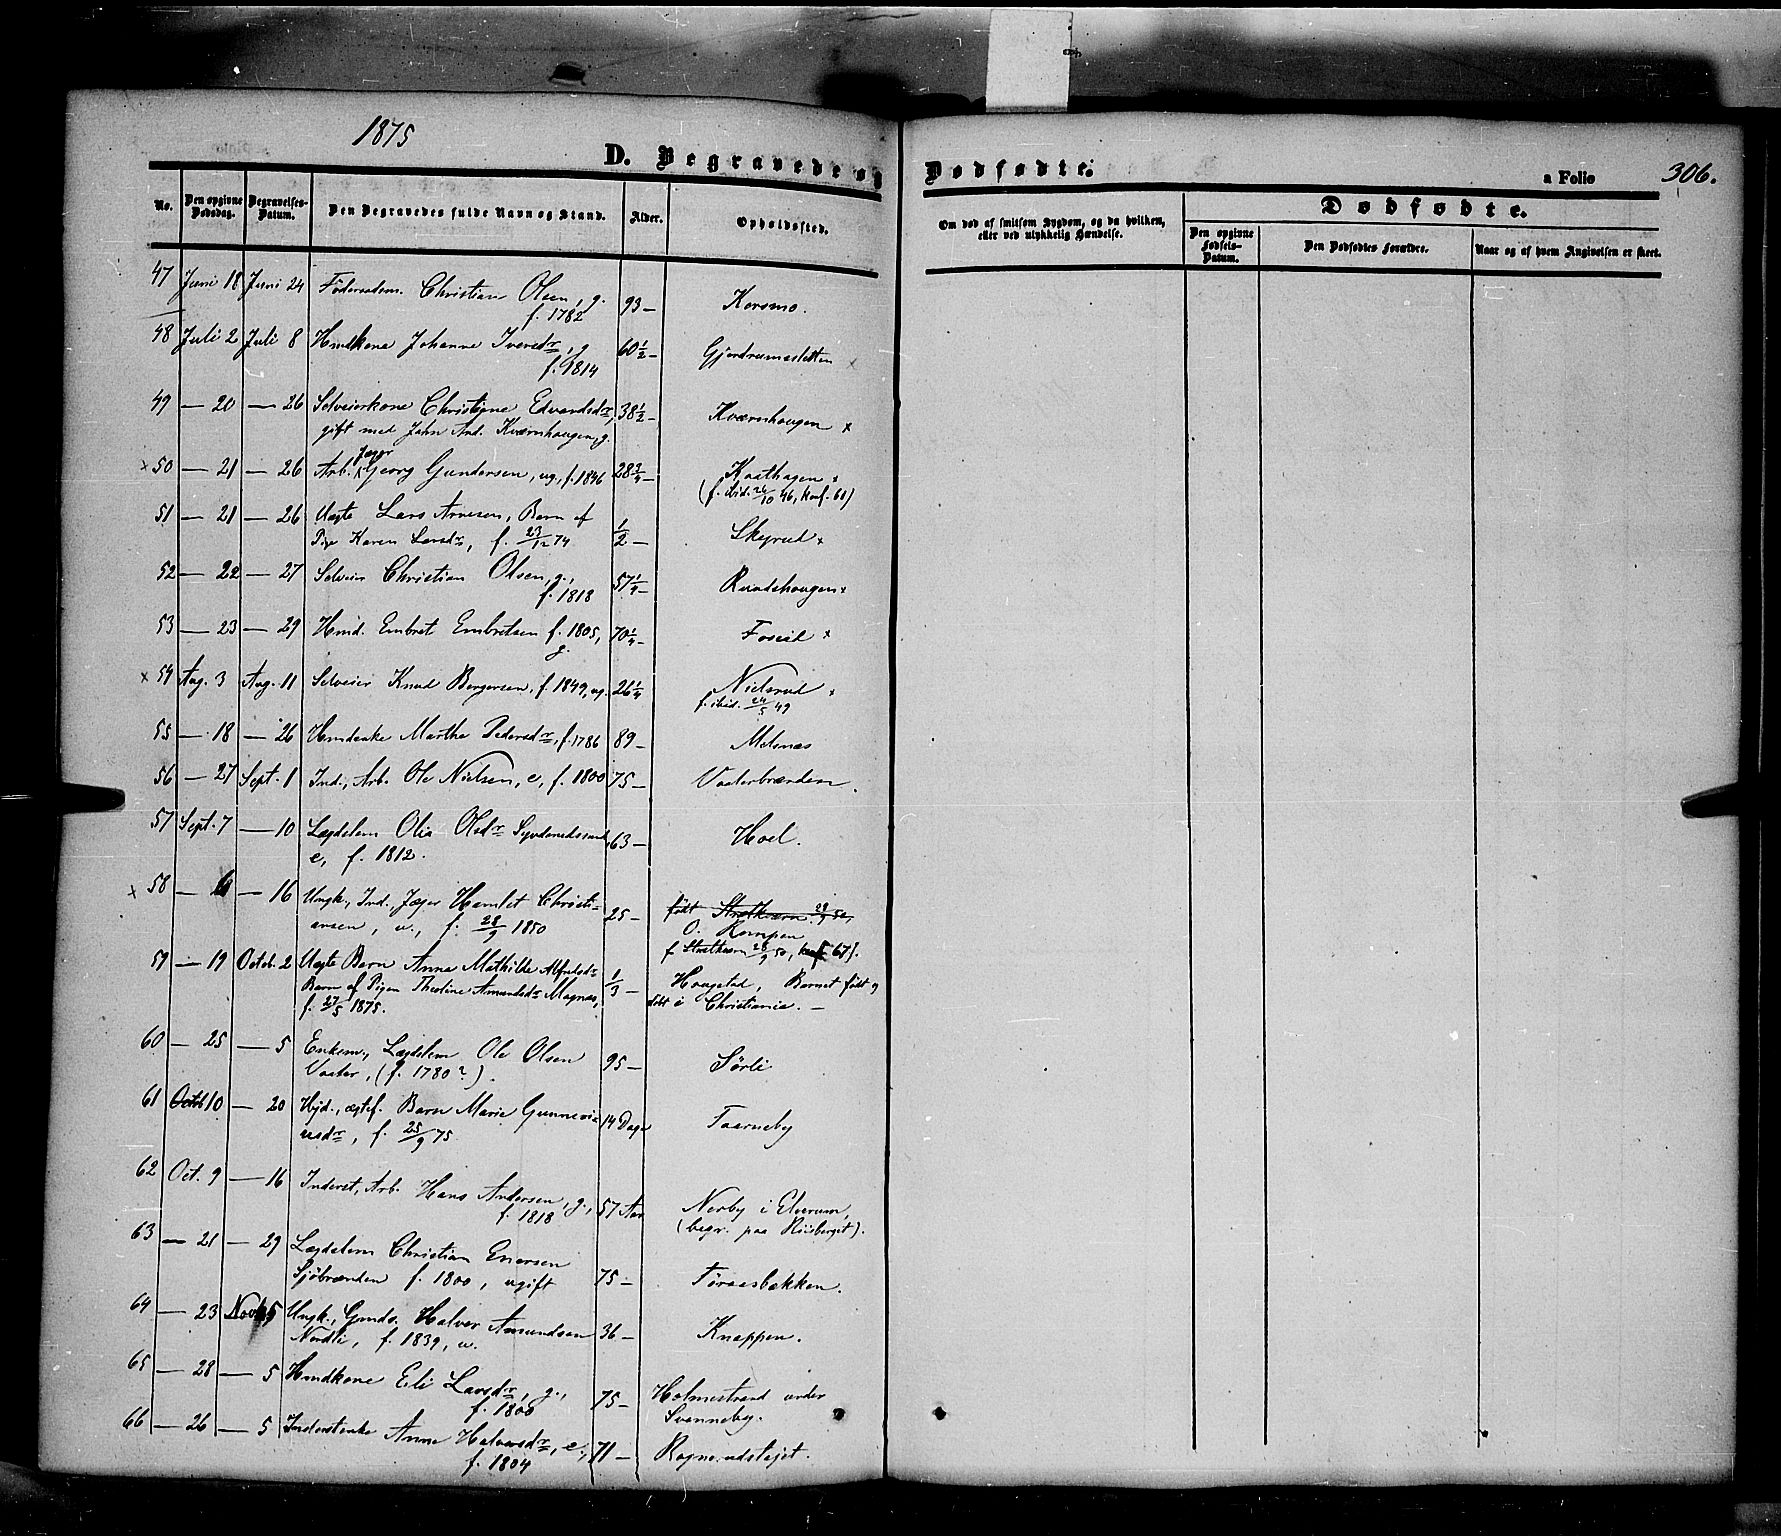 1875
D. Begravede og Dødfødte.
a Folio 306.
No.
Den opgivne Dødsdag.
Begravelses-Datum.
Den Begravedes fulde Navn og Stand.
Alder.
Opholdssted.
Om død af smitsom Sygdom, og da hvilken, eller ved ulykkelig Hændelse.
Dødfødte.
Den opgivne Fødsels-Datum.
Den Dødfødtes Forældre.
Naar og af hvem Angivelsen er skeet.
47 Juni 18 Juni 24 Föderaadsm. Christian Olsen, g. 93 — Korsmo.
f. 1782
48 Juli 2 Juli 8 Hmdkone Johanne Iversdr, g 60 1/2 — Gjerdrumsletten
f. 1814
49 — 20 — 26 Selveierkone Christiane Edvardsdr, 38 1/2 — Kværnhougen x
gift med John And. Kværnhougen, g.
x 50 — 21 — 26 Arb. Jæger Georg Gundersen, ug., f. 1846 28 3/4 — Kaathagen x
(f. ibid. 26/10 46, konf. 61)
51 — 21 — 26 Uægte Lars Arnesen, Barn af 1/2 — Skyrud x
Pige Karen Larsdr, f. 23/12 74
52 — 22 — 27 Selveier Christian Olsen, g., 57 1/4 — Rundehougen x
f. 1818
53 — 23 — 29 Hmd. Embret Embretsen f. 1805, 70 1/4 — Foseid x
g.
x 54 Aug. 3 Aug. 11 Selveier Knud Bergersen, f. 1849, ug. 26 1/4 Nielsrud x
f. ibid. 24/5 49
55 — 18 — 26 Hmdenke Marthe Pedersdr, f. 1786 89 — Melsnæs
56 — 27 Sept. 1 Ind., Arb. Ole Nielsen, e, f. 1800 75 — Vaaterbrænden.
57 Sept. 7 — 10 Lægdslem Olia Olsdr 63 — Hoel.
e, f. 1812.
x 58 — — 16 Ungk., Ind., Jæger Hamlet Christi= 25 — født 28/9 50,
ansen, u., f. 28/9 1850 O. Kompen
f 28/9 50, konf 67).
59 — 19 Octob. 2 Uægte Barn Anna Mathilde Alfredsdr 1/3 — Haugstad, Barnet født og
Barn af Pigen Theoline Amundsdr Magnæs, døbt i Christiania. —
f. 27/5 1875.
60 — 25 — 5 Enkem., Lægdslem Ole Olsen 95 — Sörli
Vaater, (f. 1780?).
61 Octob 10 — 20 Hjd., ægtef. Barn Marie Gunneri= 14 Dage Taarneby
usdr, f. 25/9 75
62 Oct. 9 — 16 Inderst, Arb. Hans Andersen, g., 57 Aar Norby i Elverum,
f. 1818 (begr. paa Riisberget).
63 — 21 — 29 Lægdslem Christian Enersen 75 — Toraasbakken.
Sjöbrænden f. 1800, ugift
64 — 23 Novb 5 Ungk., Gmds. Halvor Amundsen 36 — Knappen.
Nordli, f. 1839, u.
65 — 28 — 5 Hmdkone Eli Larsdr, g., 75 — Holmestrand under
f. 1800 Svenneby.
66 — 26 — 5 Inderstenke Anne Halvorsdr, e., 71 — Rognerudstøjet.
f. 1804